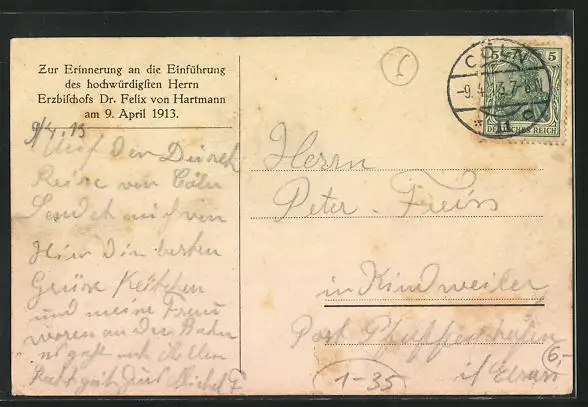 Zur Erinnerung an die Einführung
des hochwürdigsten Herrn
Erzbischofs Dr. Felix von Hartmann
am 9. April 1913.
9/4.13
Auf der Durch
Reise von Cöln
Sendet auch von
Hier Die besten
Grüße Kätchen
und meine Frau
waren an der Bahn
Michel F
CÖLN
-9.4.13.7-8
* 11 c
5 5
DEUTSCHES REICH
Herrn
Peter Freiss
in Kindweiler
Post Pfaffenhofen
i/ Elsass
1-35
6,-